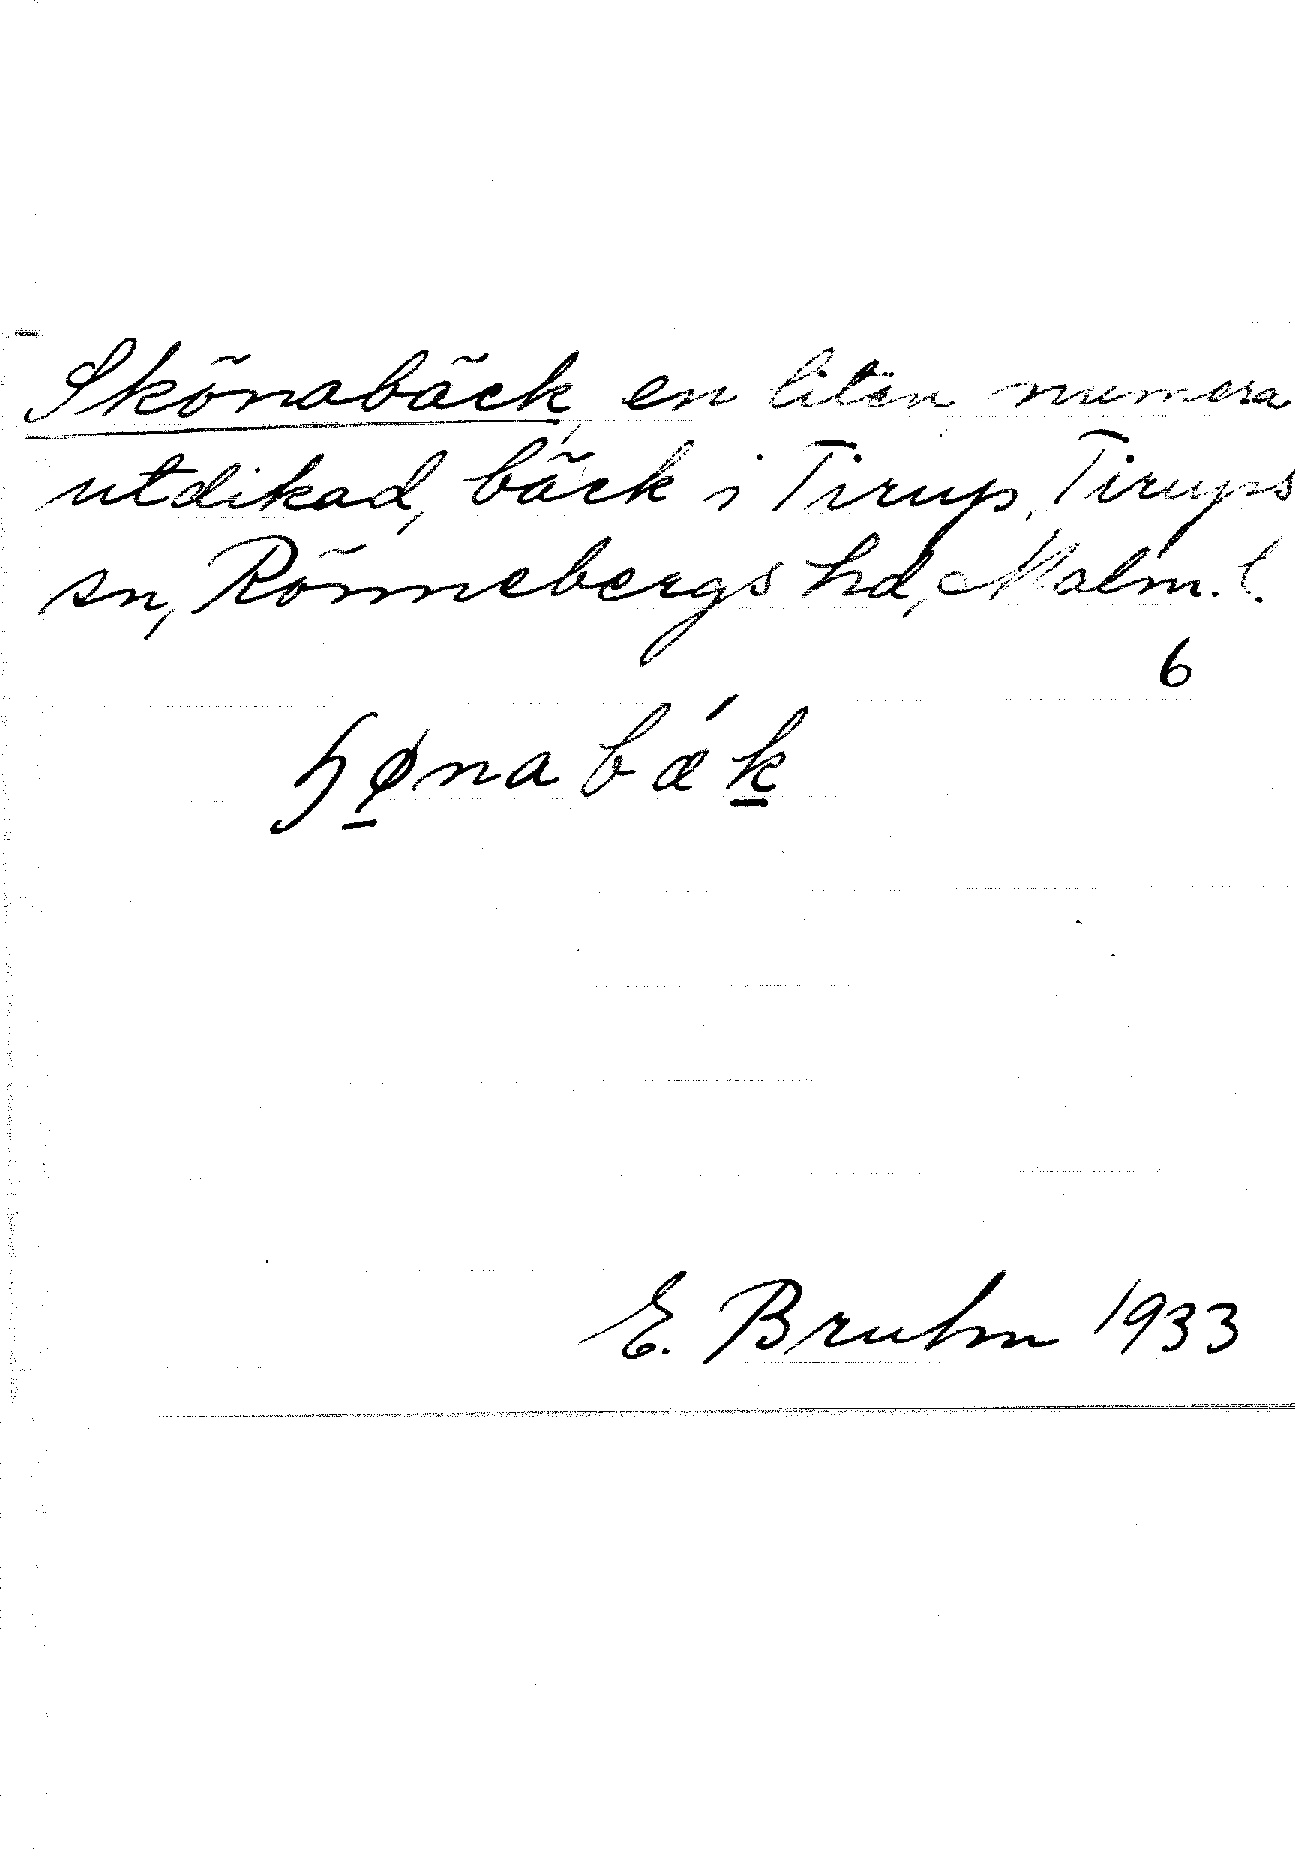 Skönabäck, en liten numera
utdikad, bäck i Tirup, Tirups
sn, Rönnebergs hd, Malm. l.
6
ɧø̱nabǽḵ
E. Bruhn 1933